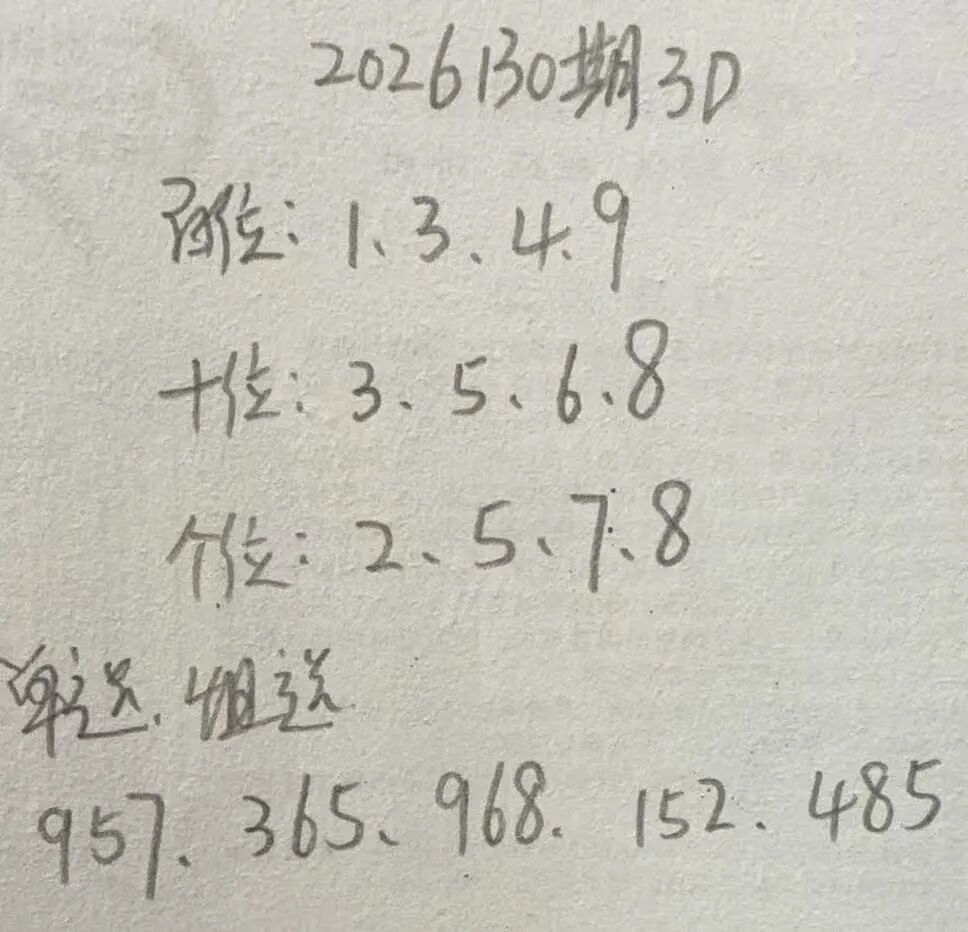 2026130期3D
百位：1、3、4、9
十位：3、5、6、8
个位：2、5、7、8
单选、组选
957、365、968、152、485